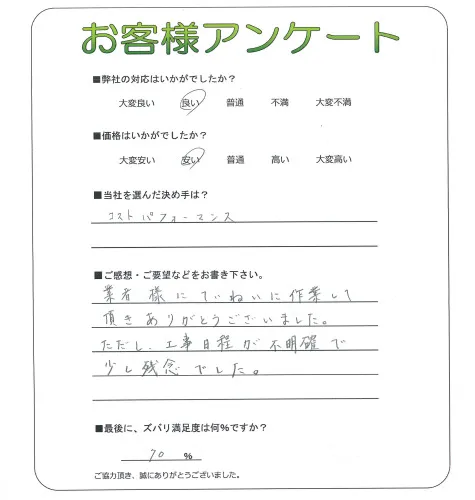 お客様アンケート
■弊社の対応はいかがでしたか?
大変良い 良い 普通 不満 大変不満
■価格はいかがでしたか?
大変安い 安い 普通 高い 大変高い
■当社を選んだ決め手は?
コストパフォーマンス
■ご感想・ご要望などをお書き下さい。
業者様にていねいに作業して
頂きありがとうございました。
ただし、工事日程が不明確で
少し残念でした。
■最後に、ズバリ満足度は何%ですか?
70 %
ご協力頂き、誠にありがとうございました。